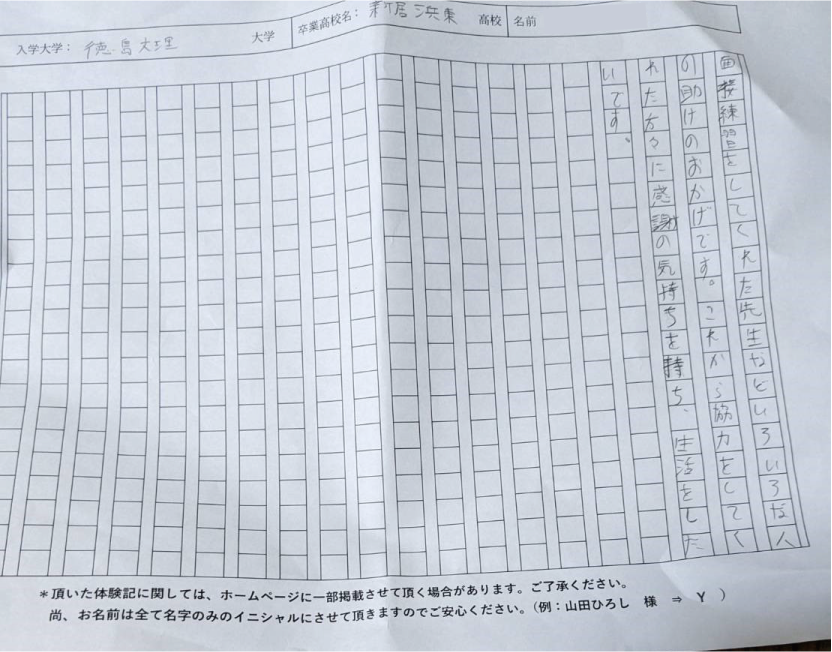 入学大学: 徳島大理 大学 卒業高校名: 新居浜東 高校 名前
面接練習をしてくれた先生などいろいろな人
の助けのおかげです。これから協力をしてく
れた方々に感謝の気持ちを持ち、生活をした
いです。
*頂いた体験記に関しては、ホームページに一部掲載させて頂く場合があります。ご了承ください。
尚、お名前は全て名字のみのイニシャルにさせて頂きますのでご安心ください。(例:山田ひろし 様 ⇒ Y )